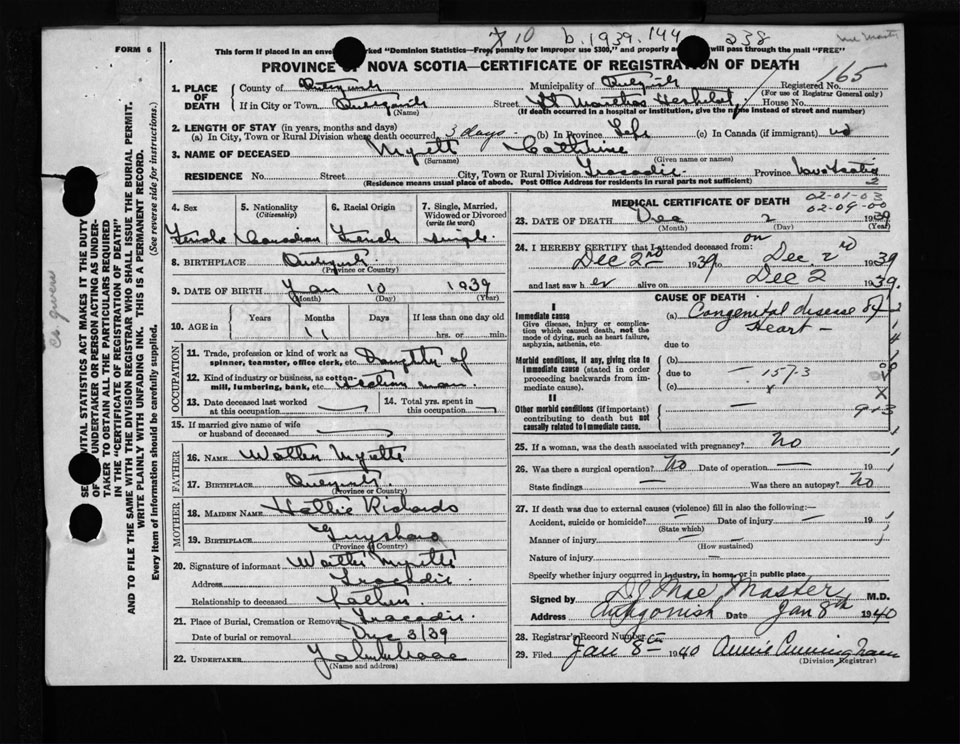 b. 1939. 144 238
FORM 6
This form if placed in an marked "Dominion Statistics—Free, penalty for improper use $300," and properly will pass through the mail "FREE"
PROVINCE OF NOVA SCOTIA—CERTIFICATE OF REGISTRATION OF DEATH
165
1. PLACE OF DEATH
County of Antigonish Municipality of Antigonish Registered No.
(For use of Registrar General only)
If in City or Town Antigonish Street St Marthas Hospital House No.
(Name) (If death occurred in a hospital or institution, give the name instead of street and number)
2. LENGTH OF STAY (in years, months and days)
(a) In City, Town or Rural Division where death occurred 3 days (b) In Province Life (c) In Canada (if immigrant)
3. NAME OF DECEASED Myette Catherine
(Surname) (Given name or names)
RESIDENCE No. Street City, Town or Rural Division Tracadie Province Nova Scotia
(Residence means usual place of abode. Post Office Address for residents in rural parts not sufficient) 2
4. Sex 5. Nationality (Citizenship) 6. Racial Origin 7. Single, Married, Widowed or Divorced (write the word)
Female Canadian French Single
8. BIRTHPLACE Antigonish
(Province or Country)
9. DATE OF BIRTH Jan 10 1939
(Month) (Day) (Year)
10. AGE in Years Months Days If less than one day old
11 hrs. or min.
OCCUPATION
11. Trade, profession or kind of work as spinner, teamster, office clerk, etc. Daughter of
12. Kind of industry or business, as cotton-mill, lumbering, bank, etc. man
13. Date deceased last worked at this occupation
14. Total yrs. spent in this occupation
15. If married give name of wife or husband of deceased
FATHER
16. NAME Walter Myette
17. BIRTHPLACE Antigonish
(Province or Country)
MOTHER
18. MAIDEN NAME Hattie Richards
19. BIRTHPLACE Guysboro
(Province or Country)
20. Signature of informant Walter Myette
Address Tracadie
Relationship to deceased Father
21. Place of Burial, Cremation or Removal Tracadie
Date of burial or removal Dec 3/39
22. UNDERTAKER
(Name and address)
MEDICAL CERTIFICATE OF DEATH
02-01-03
02-09-00
23. DATE OF DEATH Dec 2 1939
(Month) (Day) (Year)
24. I HEREBY CERTIFY that I attended deceased from: on
Dec 2nd 1939 to Dec. 2nd 1939
and last saw her alive on Dec 2 1939.
CAUSE OF DEATH
I
Immediate cause
Give disease, injury or complication which caused death, not the mode of dying, such as heart failure, asphyxia, asthenia, etc.
(a) Congenital disease of
Heart —
due to
Morbid conditions, if any, giving rise to immediate cause (stated in order proceeding backwards from immediate cause).
(b)
due to — 157.3
(c)
II
Other morbid conditions (if important) contributing to death but not causally related to immediate cause.
25. If a woman, was the death associated with pregnancy? No
26. Was there a surgical operation? No Date of operation — 19
State findings — Was there an autopsy? No
27. If death was due to external causes (violence) fill in also the following:—
Accident, suicide or homicide? — Date of injury — 19
(State which)
Manner of injury —
(How sustained)
Nature of injury —
Specify whether injury occurred in industry, in home, or in public place
Signed by MacMaster M.D.
Address Antigonish Date Jan 8th 1940
28. Registrar's Record Number
29. Filed Jan 8th 1940 Annie Cunningham
(Division Registrar)
AND TO FILE THE SAME WITH THE DIVISION REGISTRAR WHO SHALL ISSUE THE BURIAL PERMIT.
WRITE PLAINLY WITH UNFADING INK. THIS IS A PERMANENT RECORD.
Every item of Information should be carefully supplied. (See reverse side for instructions.)
VITAL STATISTICS ACT MAKES IT THE DUTY
UNDERTAKER OR PERSON ACTING AS UNDERTAKER TO OBTAIN ALL THE PARTICULARS REQUIRED
IN THE "CERTIFICATE OF REGISTRATION OF DEATH"